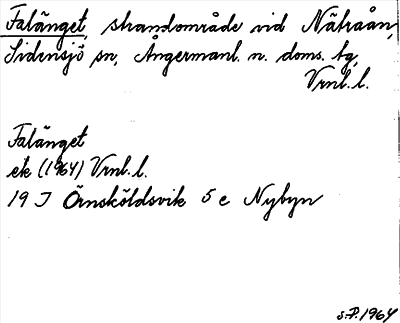 Falänget, strandområde vid Nätraån,
Sidensjö sn, Ångermanl. n. doms. tg,
Vrnl. l.
Falänget
ek (1964) Vrnl. l.
19 J Örnsköldsvik 5 c Nybyn
S.P. 1964